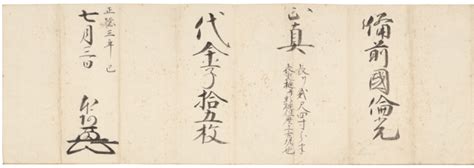 備前國倫光
正真
長サ貳尺四寸
表裏樋
代金子拾五枚
正徳三年 巳
七月三日
本阿